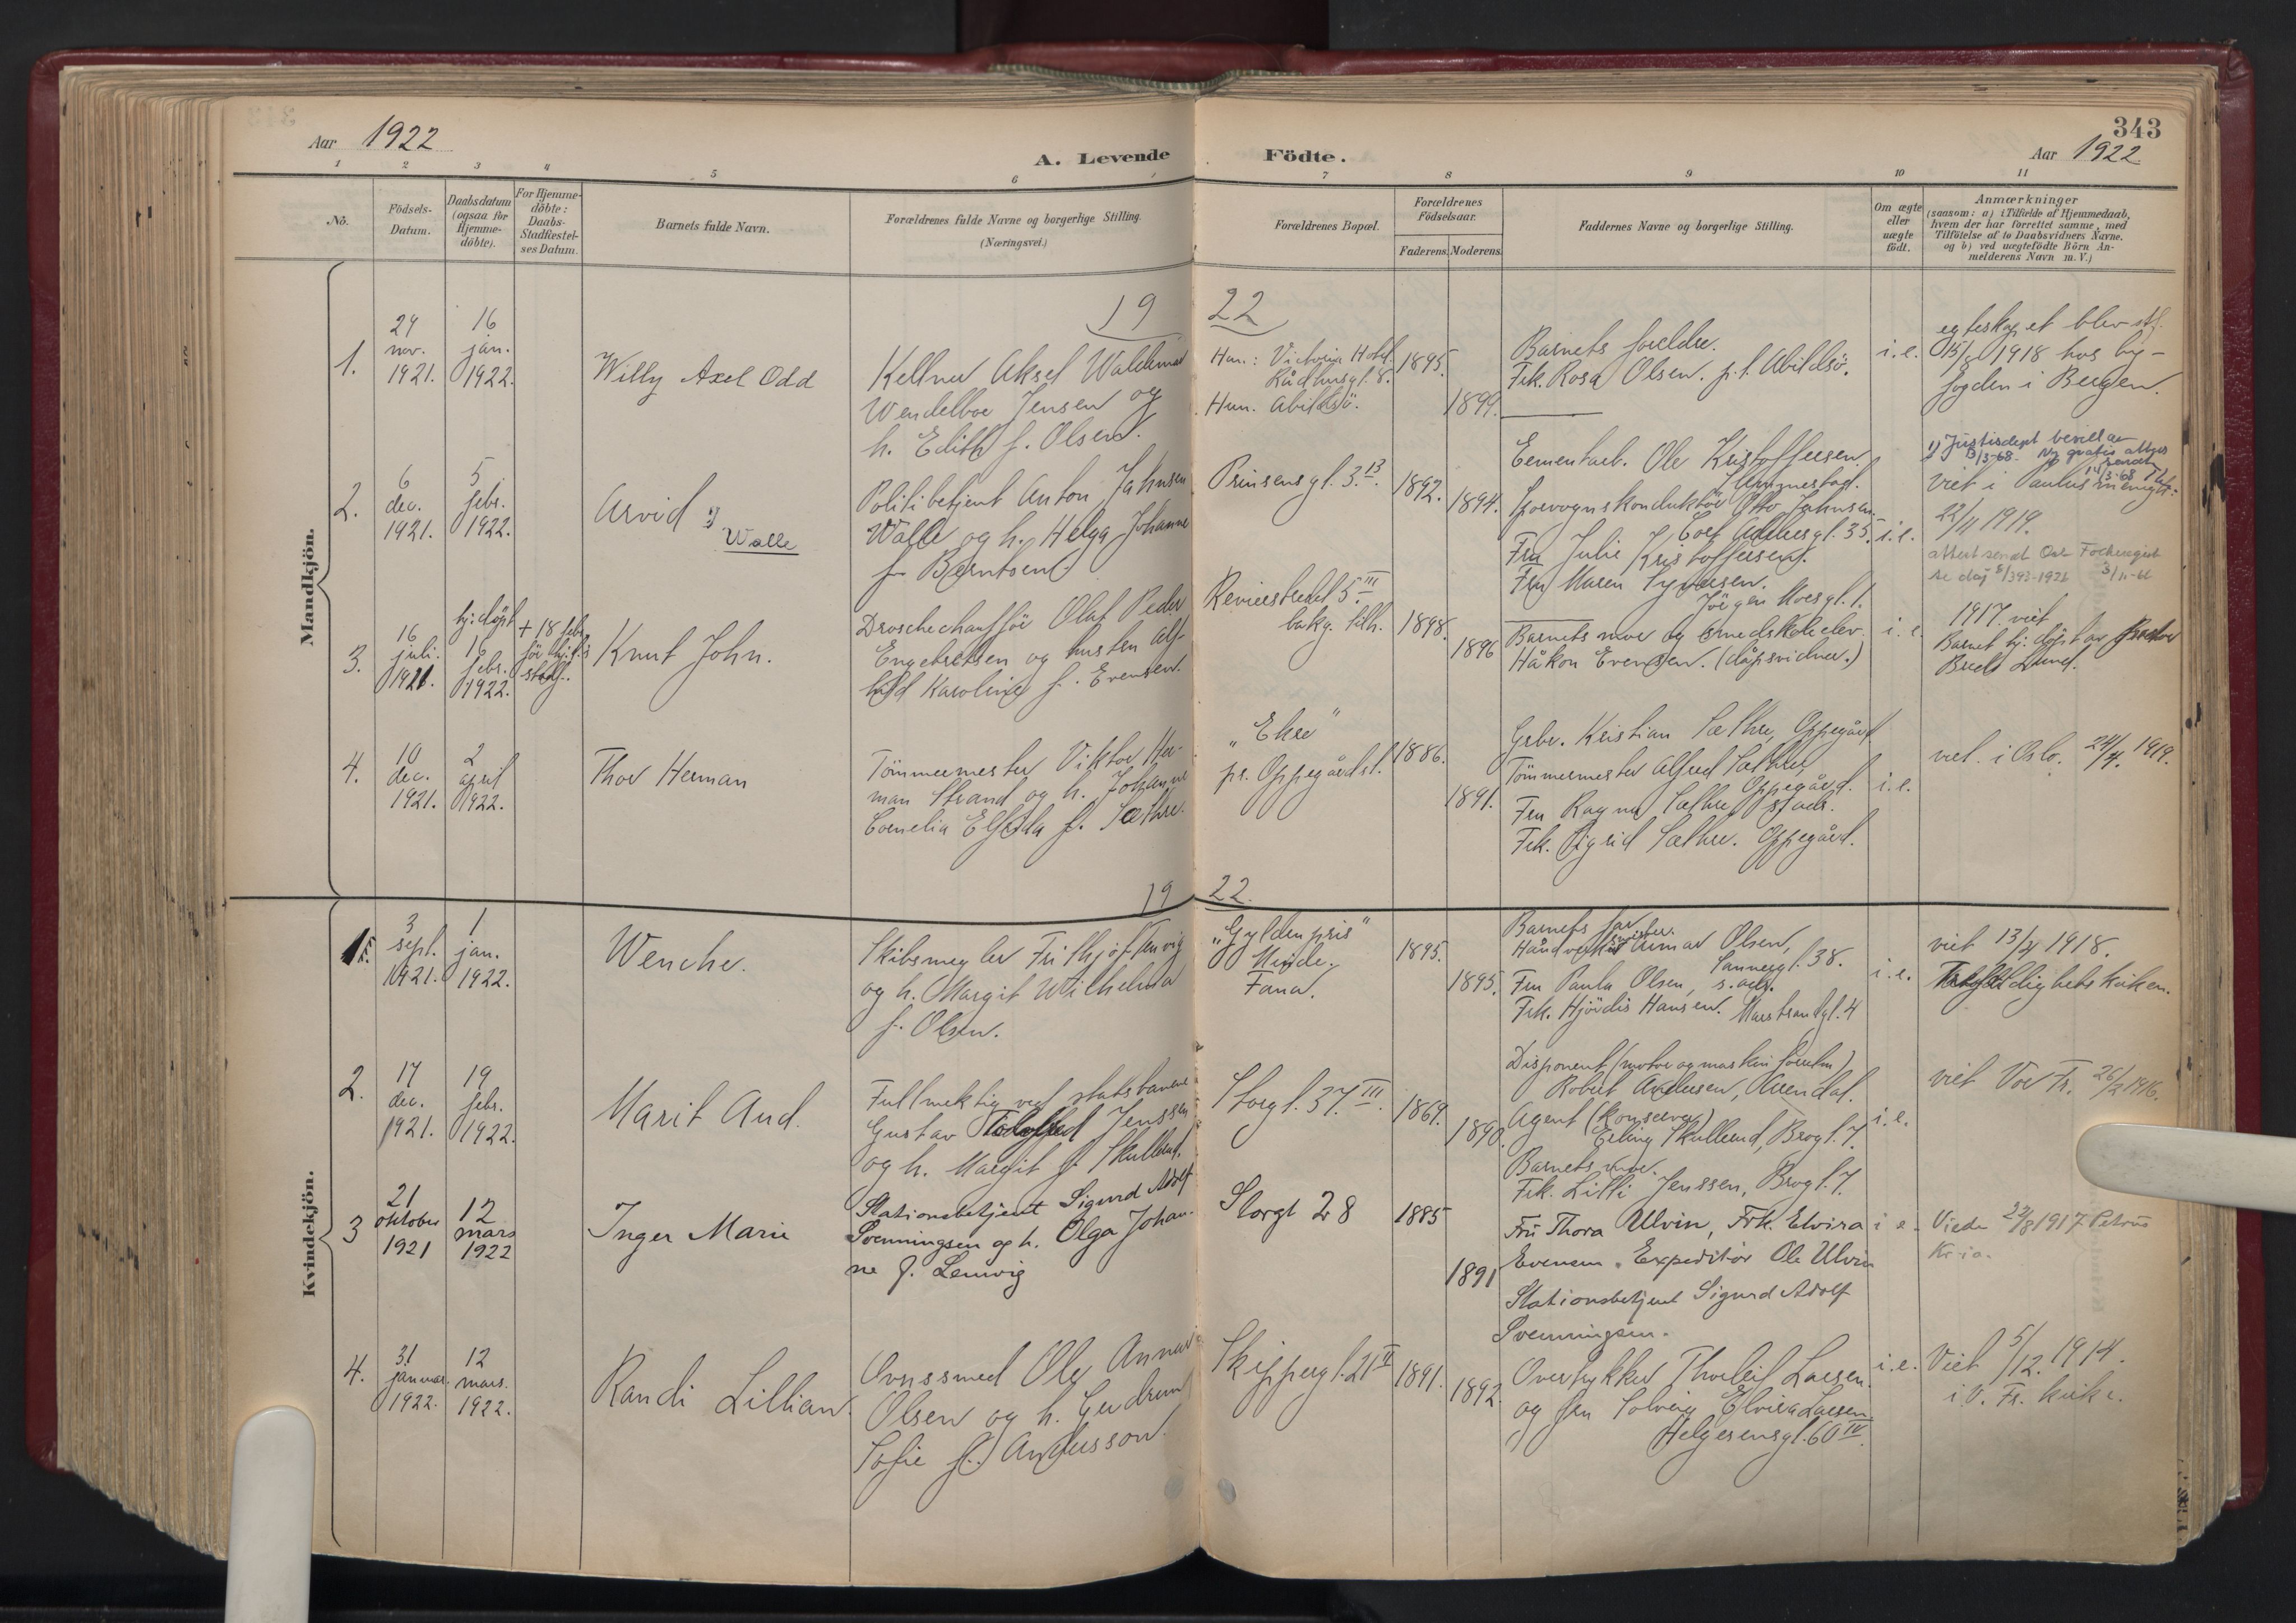 343
Aar 1922
A. Levende Födte.
Aar 1922
1 2 3 4 5 6 7 8 9 10 11
No.
Födsels-
Datum.
Daabsdatum
(ogsaa for
Hjemme-
döbte).
For Hjemme-
döbte:
Daabs-
Stadfæstel-
ses Datum.
Barnets fulde Navn.
Forældrenes fulde Navne og borgerlige Stilling.
(Næringsvei.)
Forældrenes Bopæl.
Forældrenes
Födselsaar.
Faderens. Moderens.
Faddernes Navne og borgerlige Stilling.
Om ægte
eller
uægte
födt.
Anmærkninger
(saasom: a) i Tilfælde af Hjemmedaab,
hvem der har forrettet samme, med
Tilföielse af to Daabsvidners Navne.
og b) ved uægtefödte Börn An-
melderens Navn m. V.)
Mandkjön.
19 22
1.
24
nov.
1921.
16
jan.
1922.
Willy Axel Odd
Kellner Aksel Waldemar
Wendelboe Jensen og
h. Edith f. Olsen.
Han: Victoria Hotel.
Rådhusgt. 8.
Hun. Abildsö.
1895.
1899.
Barnets foreldre.
Frk. Rosa Olsen. p.t. Abildsö.
i.e.
egteskapet blev stf.
15/8 1918 hos by-
fogden i Bergen.
2.
6
dec.
1921.
5
febr.
1922.
Arvid 1)
Walle
Politibetjent Anton Jahnsen
Walle og h. Helga Johanne
f. Berntsen.
Prinsensgt. 3.13.
1892.
1894.
Cementarb. Ole Kristoffersen
Hemnestad.
Sporvognskonduktör Otto Jahnsen.
35.
Fru Julie Kristoffersen.
Fru Maren Syversen.
Jörgen Moesgt. 1.
i.e.
1) Justisdept bevill av
13/3-68. Ny gratis attest
sendt
14/3-68
viet i Paulus menigh.
22/11 1919.
attest sendt Oslo Folkeregist
3/11-66
3.
16
juli.
1921.
hj. döpt
16
febr.
1922.
+ 18 febr.
för hj.d.s
stadf.
Knut John.
Droschechaufför Olaf Peder
Engebretsen og hustru Alf-
hild Karoline f. Evensen.
Revierstredet 5 III
bakg. tilh.
1898.
1896
Barnets mor og smedskoleelev
Håkon Evensen. (dåpsvidner.)
i.e.
1917. viet
Barnet hj. döpt av pastor
Bredo Lund.
4.
10
dec.
1921.
2
april
1922.
Thor Herman
Tömmermester Viktor Her-
man Strand og h. Johanne
Cornelia Elfrida f. Sæthre.
"Ekse"
pr. Oppegård st.
1886.
1891.
Grbr. Kristian Sæthre, Oppegård
Tömmermester Alfred Sæthre,
Oppegård.
Fru Ragna Sæthre, s. ads.
Frk. Sigrid Sæthre. Oppegård.
i.e.
viet i Oslo. 24/4. 1919.
Kvindekjön.
19 22.
1.
3
sept.
1921.
1
jan.
1922.
Wenche.
Skibsmegler Frithjof Tenvig
og h. Margit Wilhelma
f. Olsen.
"Gyldenpris"
Minde.
Fana.
1895.
1895.
Barnets far
Gunnar Olsen,
Sannergt. 38.
Fru Paula Olsen, s. ads.
Frk. Hjördis Hansen. Marstrandgt. 4
i.e.
viet 13/4 1918.
Trefoldighetskirken.
2.
17
dec.
1921.
19
febr.
1922.
Marit Aud.
Fullmektig ved statsbanene
Gustav Jenssen
og h. Margit f. Skullerud.
Storgt. 37. III.
1869.
1890.
Disponent (motor og maskinforretn)
Robert Axelsen, Arendal.
Agent (konserver)
Erling Skullerud, Brogt. 7.
Barnets mor.
Frk. Lilli Jenssen, Brogt. 7.
i.e.
viet Vor Fr. 26/2 1916.
3
21
oktober
1921
12
mars
1922
Inger Marie
Stationsbetjent Sigurd Adolf
Svenningsen og h. Olga Johan-
ne f. Lemvig
Storgt 28
1885
1891
Fru Thora Ulvin, Frk. Elvira
Evensen. Expeditör Ole Ulvin
Stationsbetjent Sigurd Adolf
Svenningsen.
i e.
Viede 22/8 1917 Petrus
Kr.ia.
4.
31
januar.
1922.
12
mars.
1922.
Randi Lillian.
Ovnssmed Ole Annar
Olsen og h. Gudrun
Sofie f. Andersson.
Skippergt. 21 II
1891.
1892.
Overtrykker Thorleif Larsen.
og fru Solveig Elvira Larsen.
Helgesensgt. 60 IV.
i.e.
Viet 5/12. 1914.
i V. Fr. kirke.